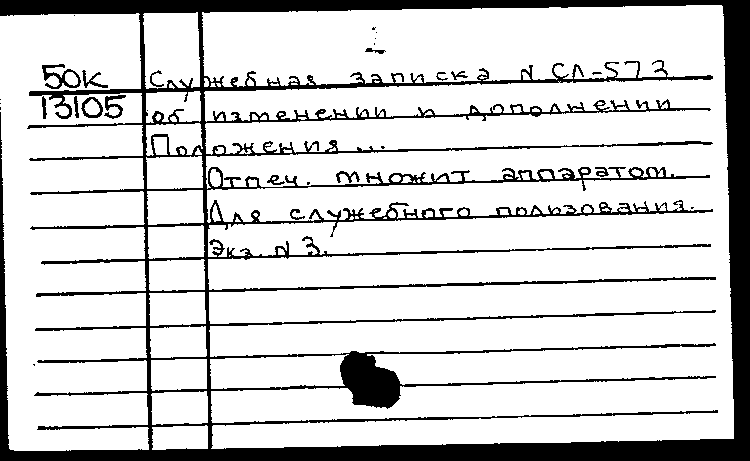 1
50К Служебная записка N СЛ-573
13105 об изменении и дополнении
Положения ...
Отпеч. множит аппаратом.
Для служебного пользования.
Экз. N 3.